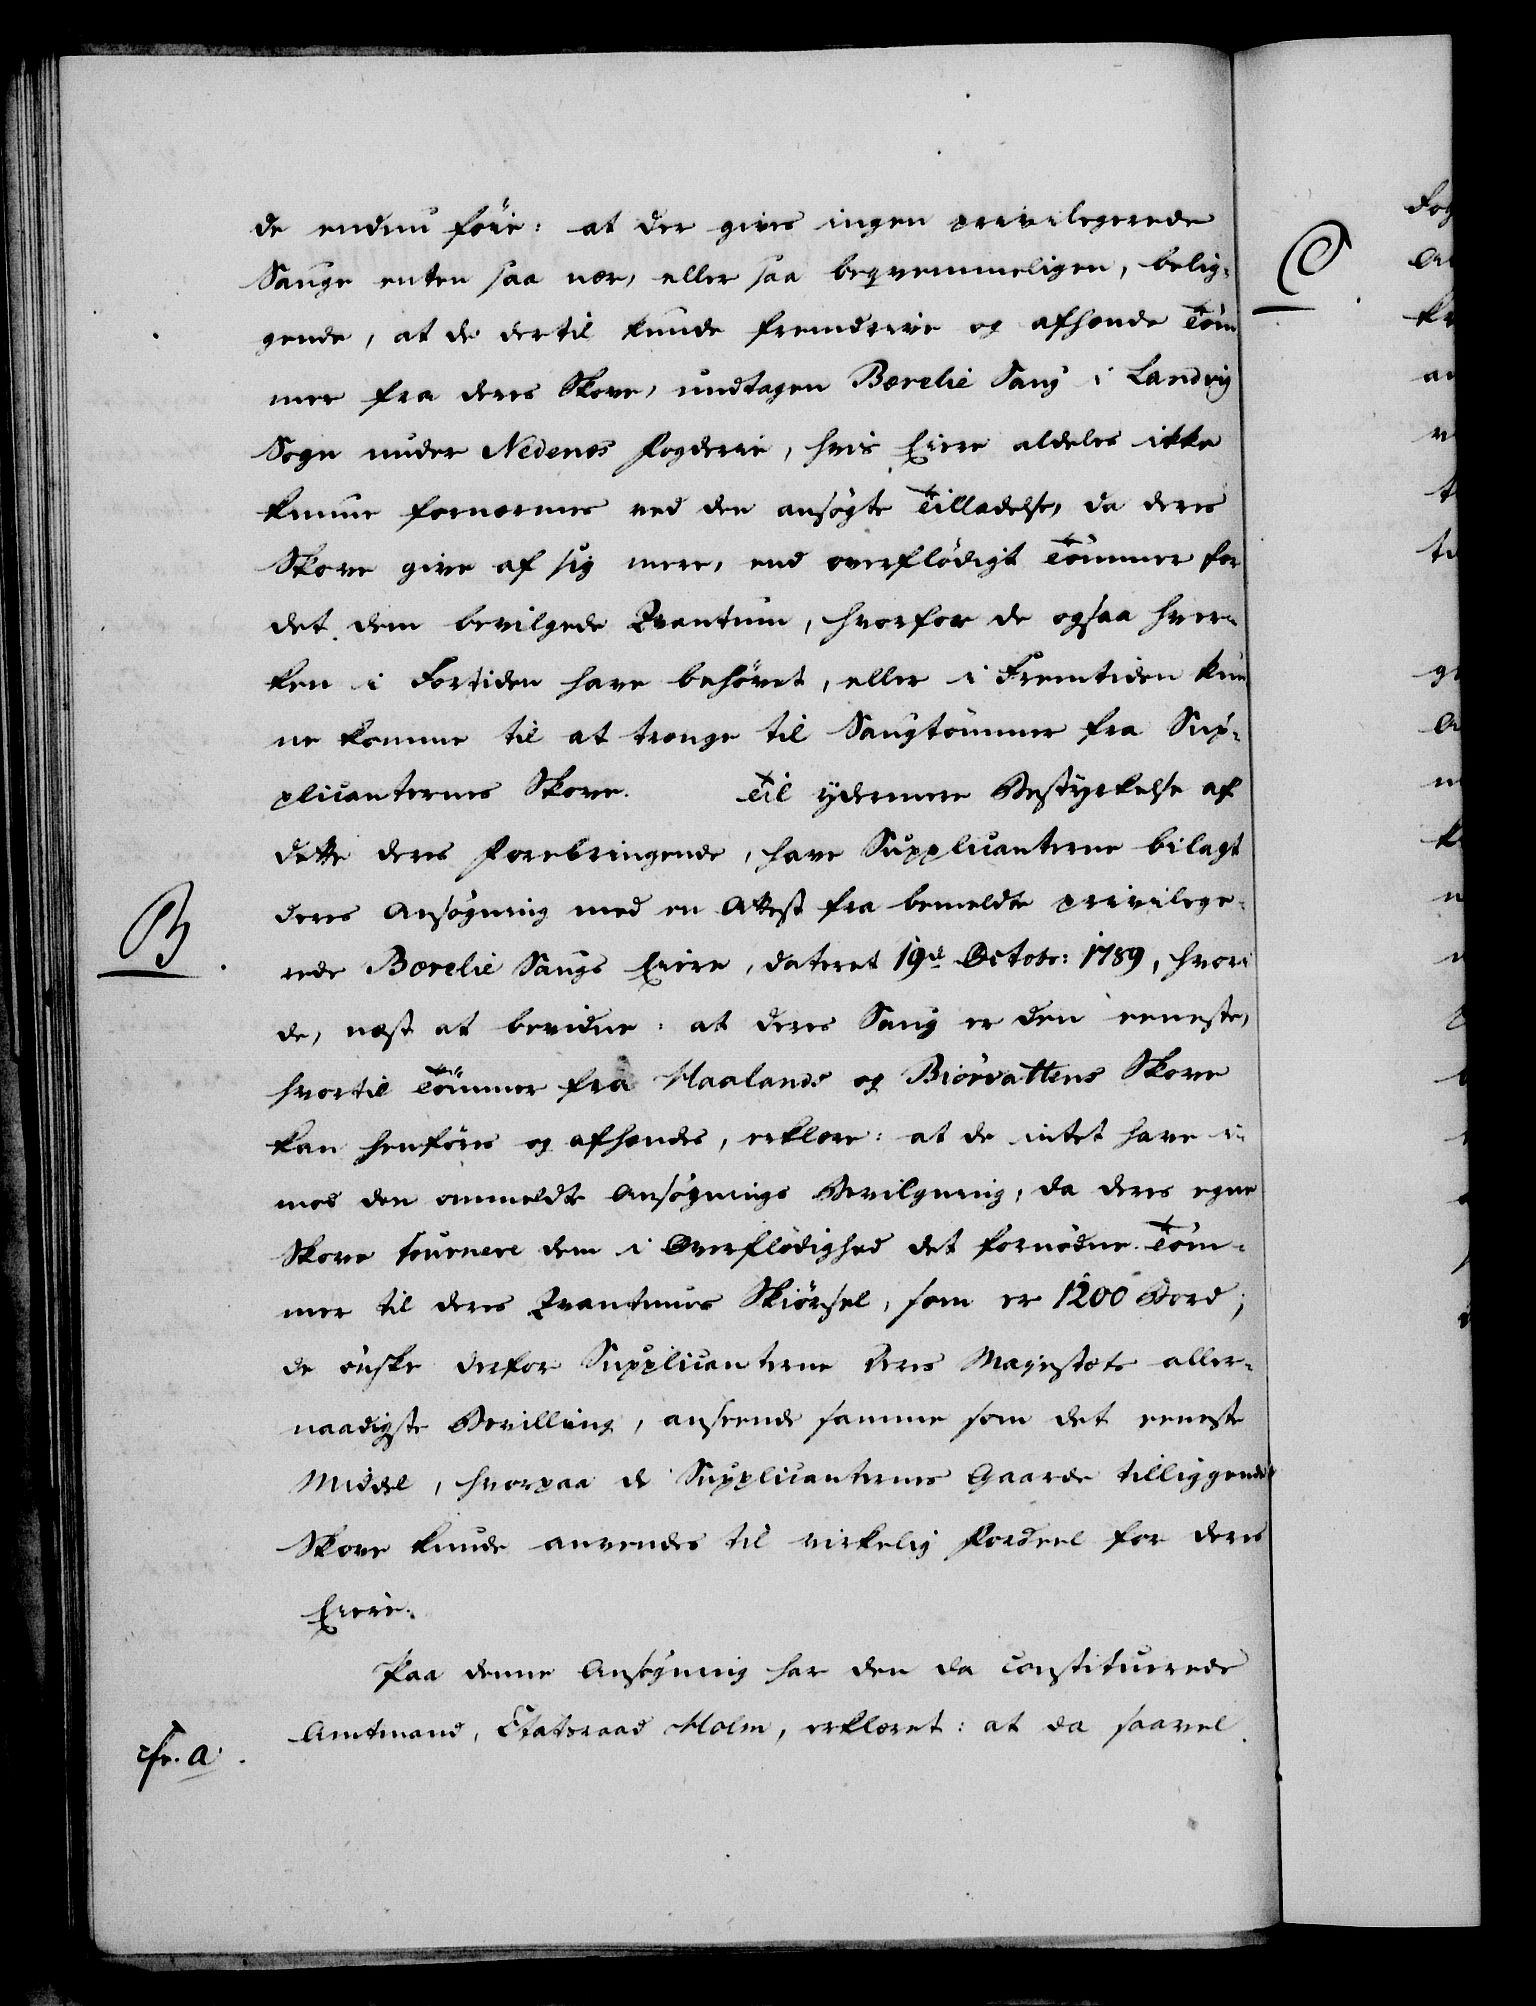 de endnu föie: at der gives ingen privilegerede
Sauge enten saa nær, eller saa beqvemmeligen, belig-
gende, at de dertil kunde fremdrive og afhænde Töm
mer fra deres Skove, undtagen Bærelie Saug i Landvig
Sogn under Nedenæs Fogderie, hvis Eiere aldeles ikke
kunne fornærmes ved den ansögte Tilladelse, da deres
Skove give af sig mere, end overflödigt Tömmer for
det dem bevilgede Qvantum, hvorfor de ogsaa hver-
ken i Fortiden have behövet, eller i Fremtiden kun
ne komme til at trænge til Saugtömmer fra Sup-
plicanternes Skove. Til ydermere Bestyrkelse af
dette deres Forebringende, have Supplicanterne bilagt
B
deres Ansögning med en Attest fra bemeldte privilege-
rede Bærelie Saugs Eiere, dateret 19de Octobr: 1789, hvori
de, næst at bevidne: at deres Saug er den eeneste,
hvortil Tömmer fra Maalands og Biörvattens Skove
kan henföres og afhændes, erklære: at de intet have i-
mod den ommeldte Ansögnings Bevilgning, da deres egne
Skove fournere dem i Overflödighed det fornödne Töm-
mer til deres Qvantums Skiörsel, som er 1200 Bord;
de önske derfor Supplicanterne Deres Majestæts aller-
naadigste Bevilling, anseende samme som det eeneste
Middel, hvorpaa de Supplicanternes Gaarde tilliggende
Skove kunde anvendes til virkelig Fordeel for deres
Eiere.
Paa denne Ansögning har den da constituerede
Amtmand, Etatsraad Holm, erklæret: at da saavel
cfr. a.
C